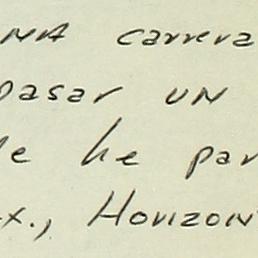 NA carrera
pasar un
le he par
x., Horizon